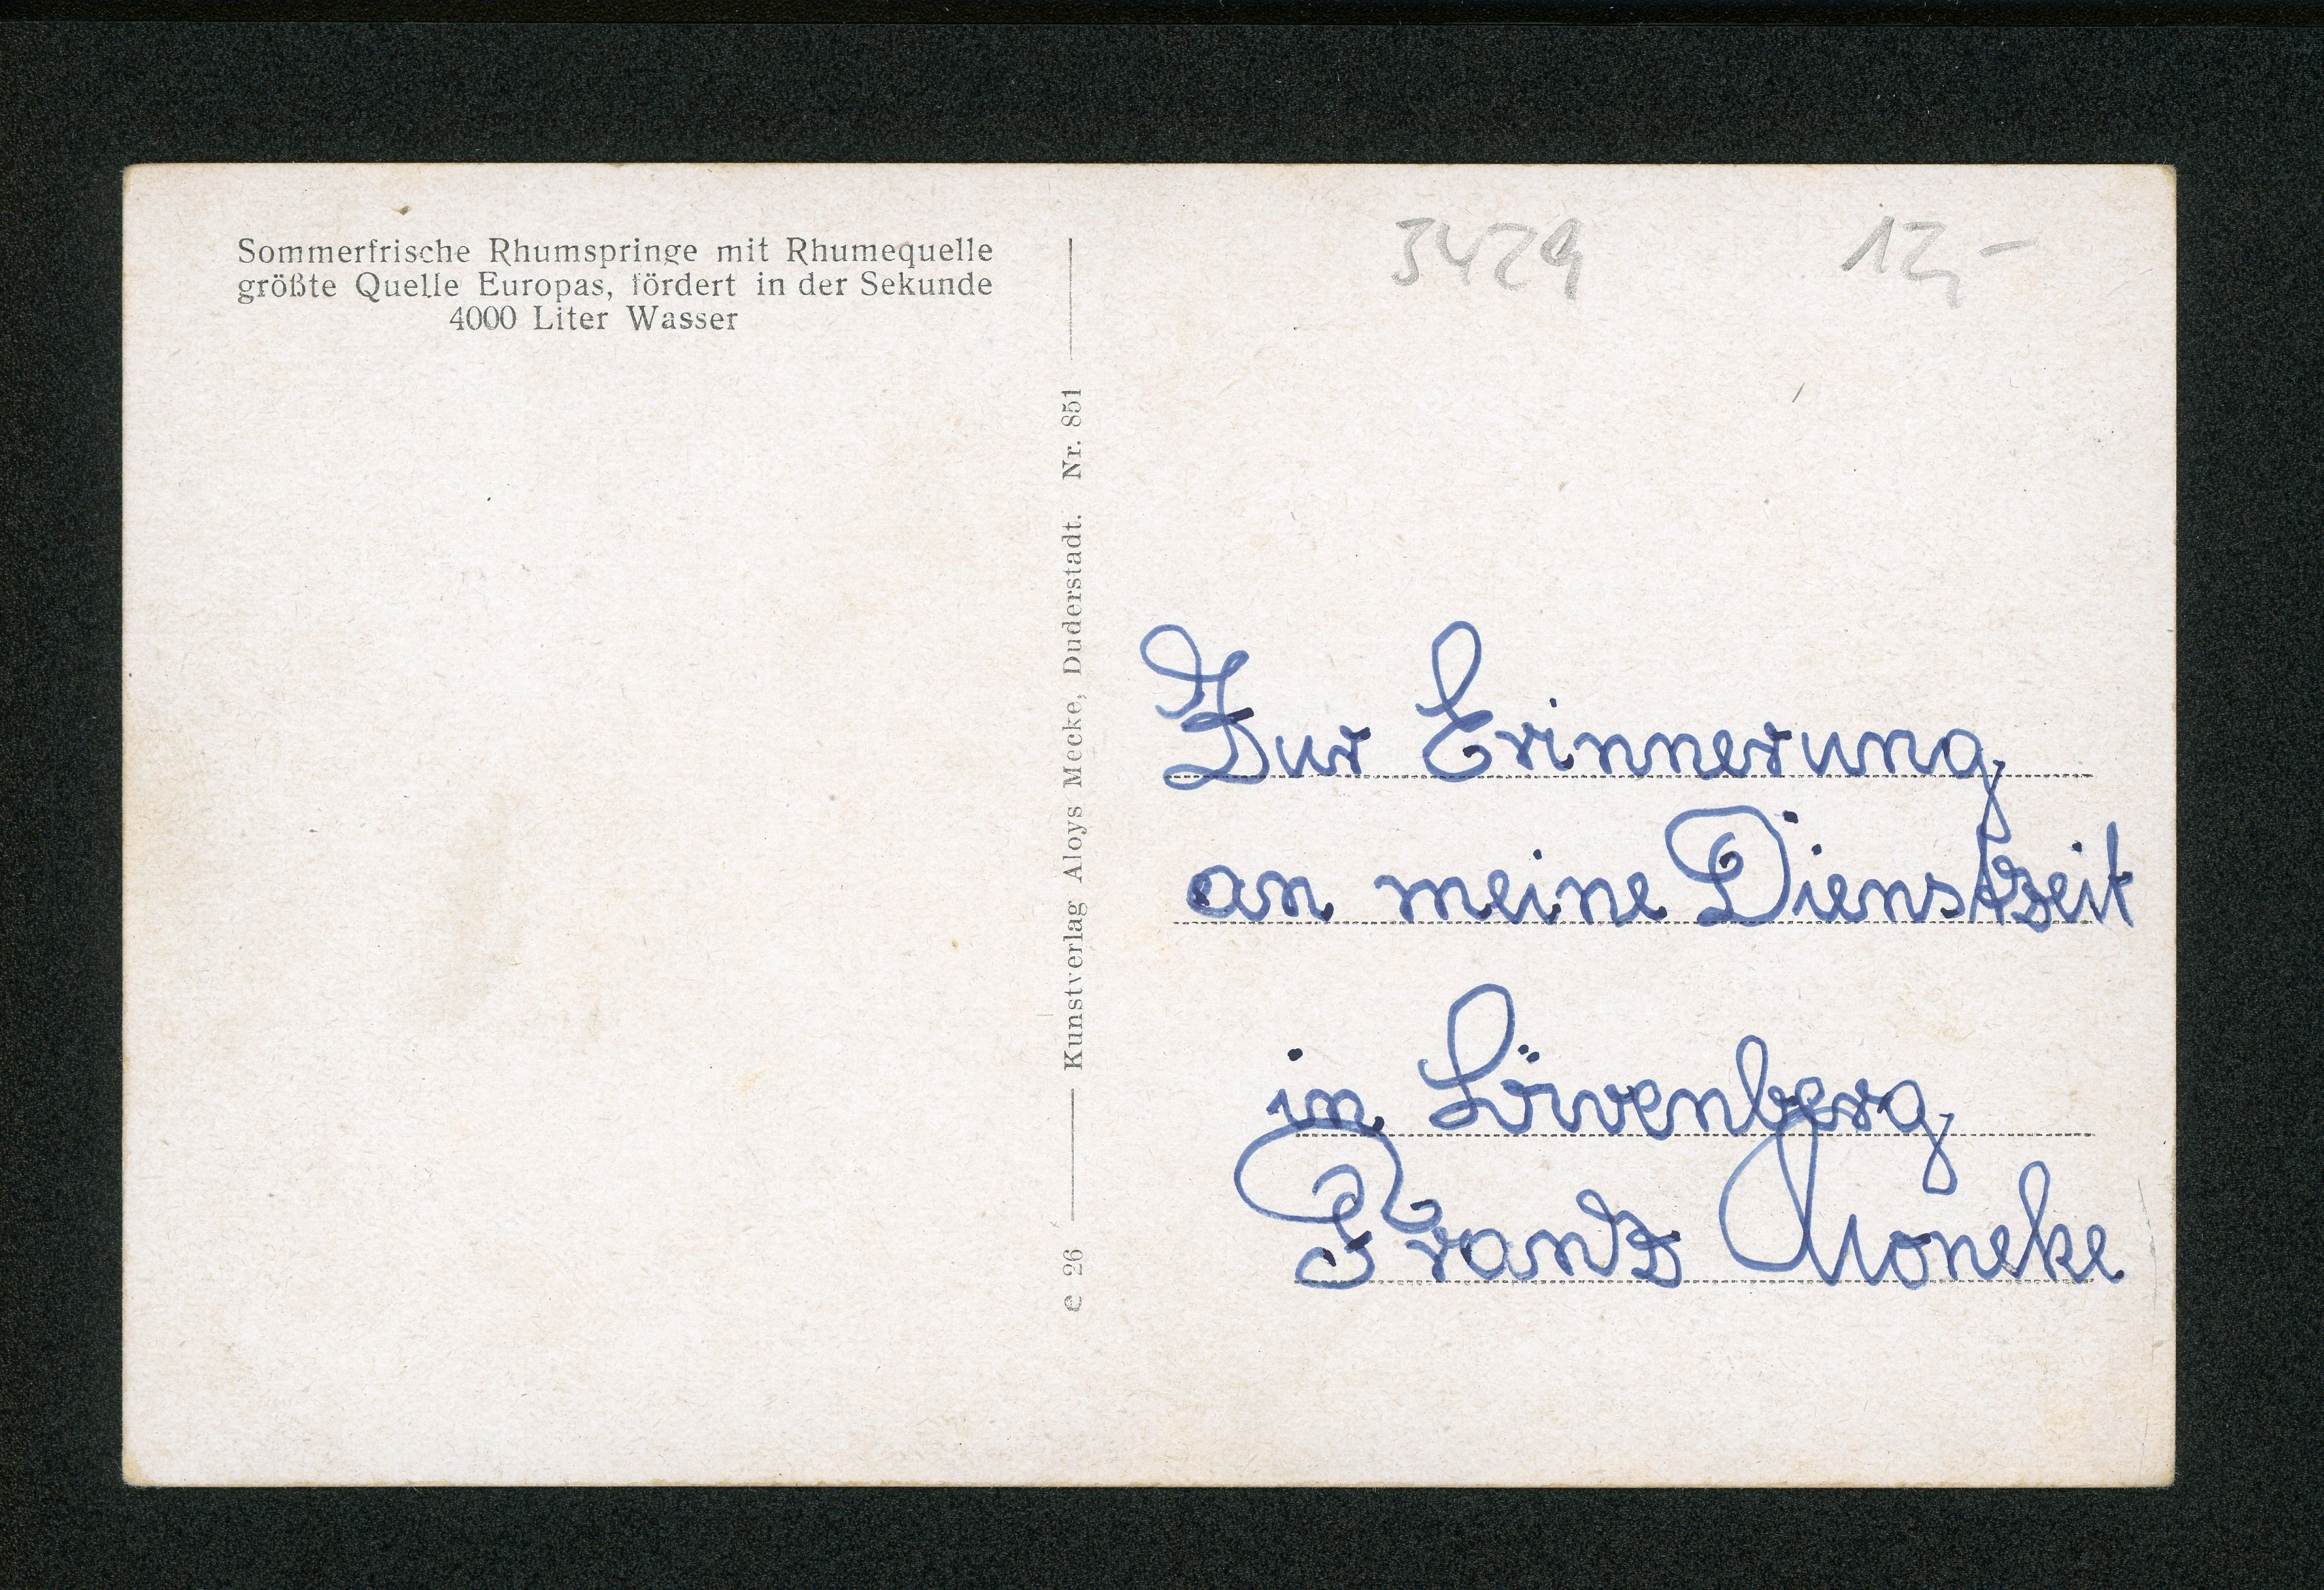 Sommerfrische Rhumspringe mit Rhumequelle
größte Quelle Europas, fördert in der Sekunde
4000 Liter Wasser
Kunstverlag Aloys Mecke, Duderstadt. Nr. 851
e 26
3429 12,-
Zur Erinnerung
an meine Dienstzeit
in Löwenberg
Frantz Moneke